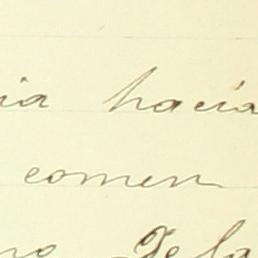 ia hacia
comen
no De la